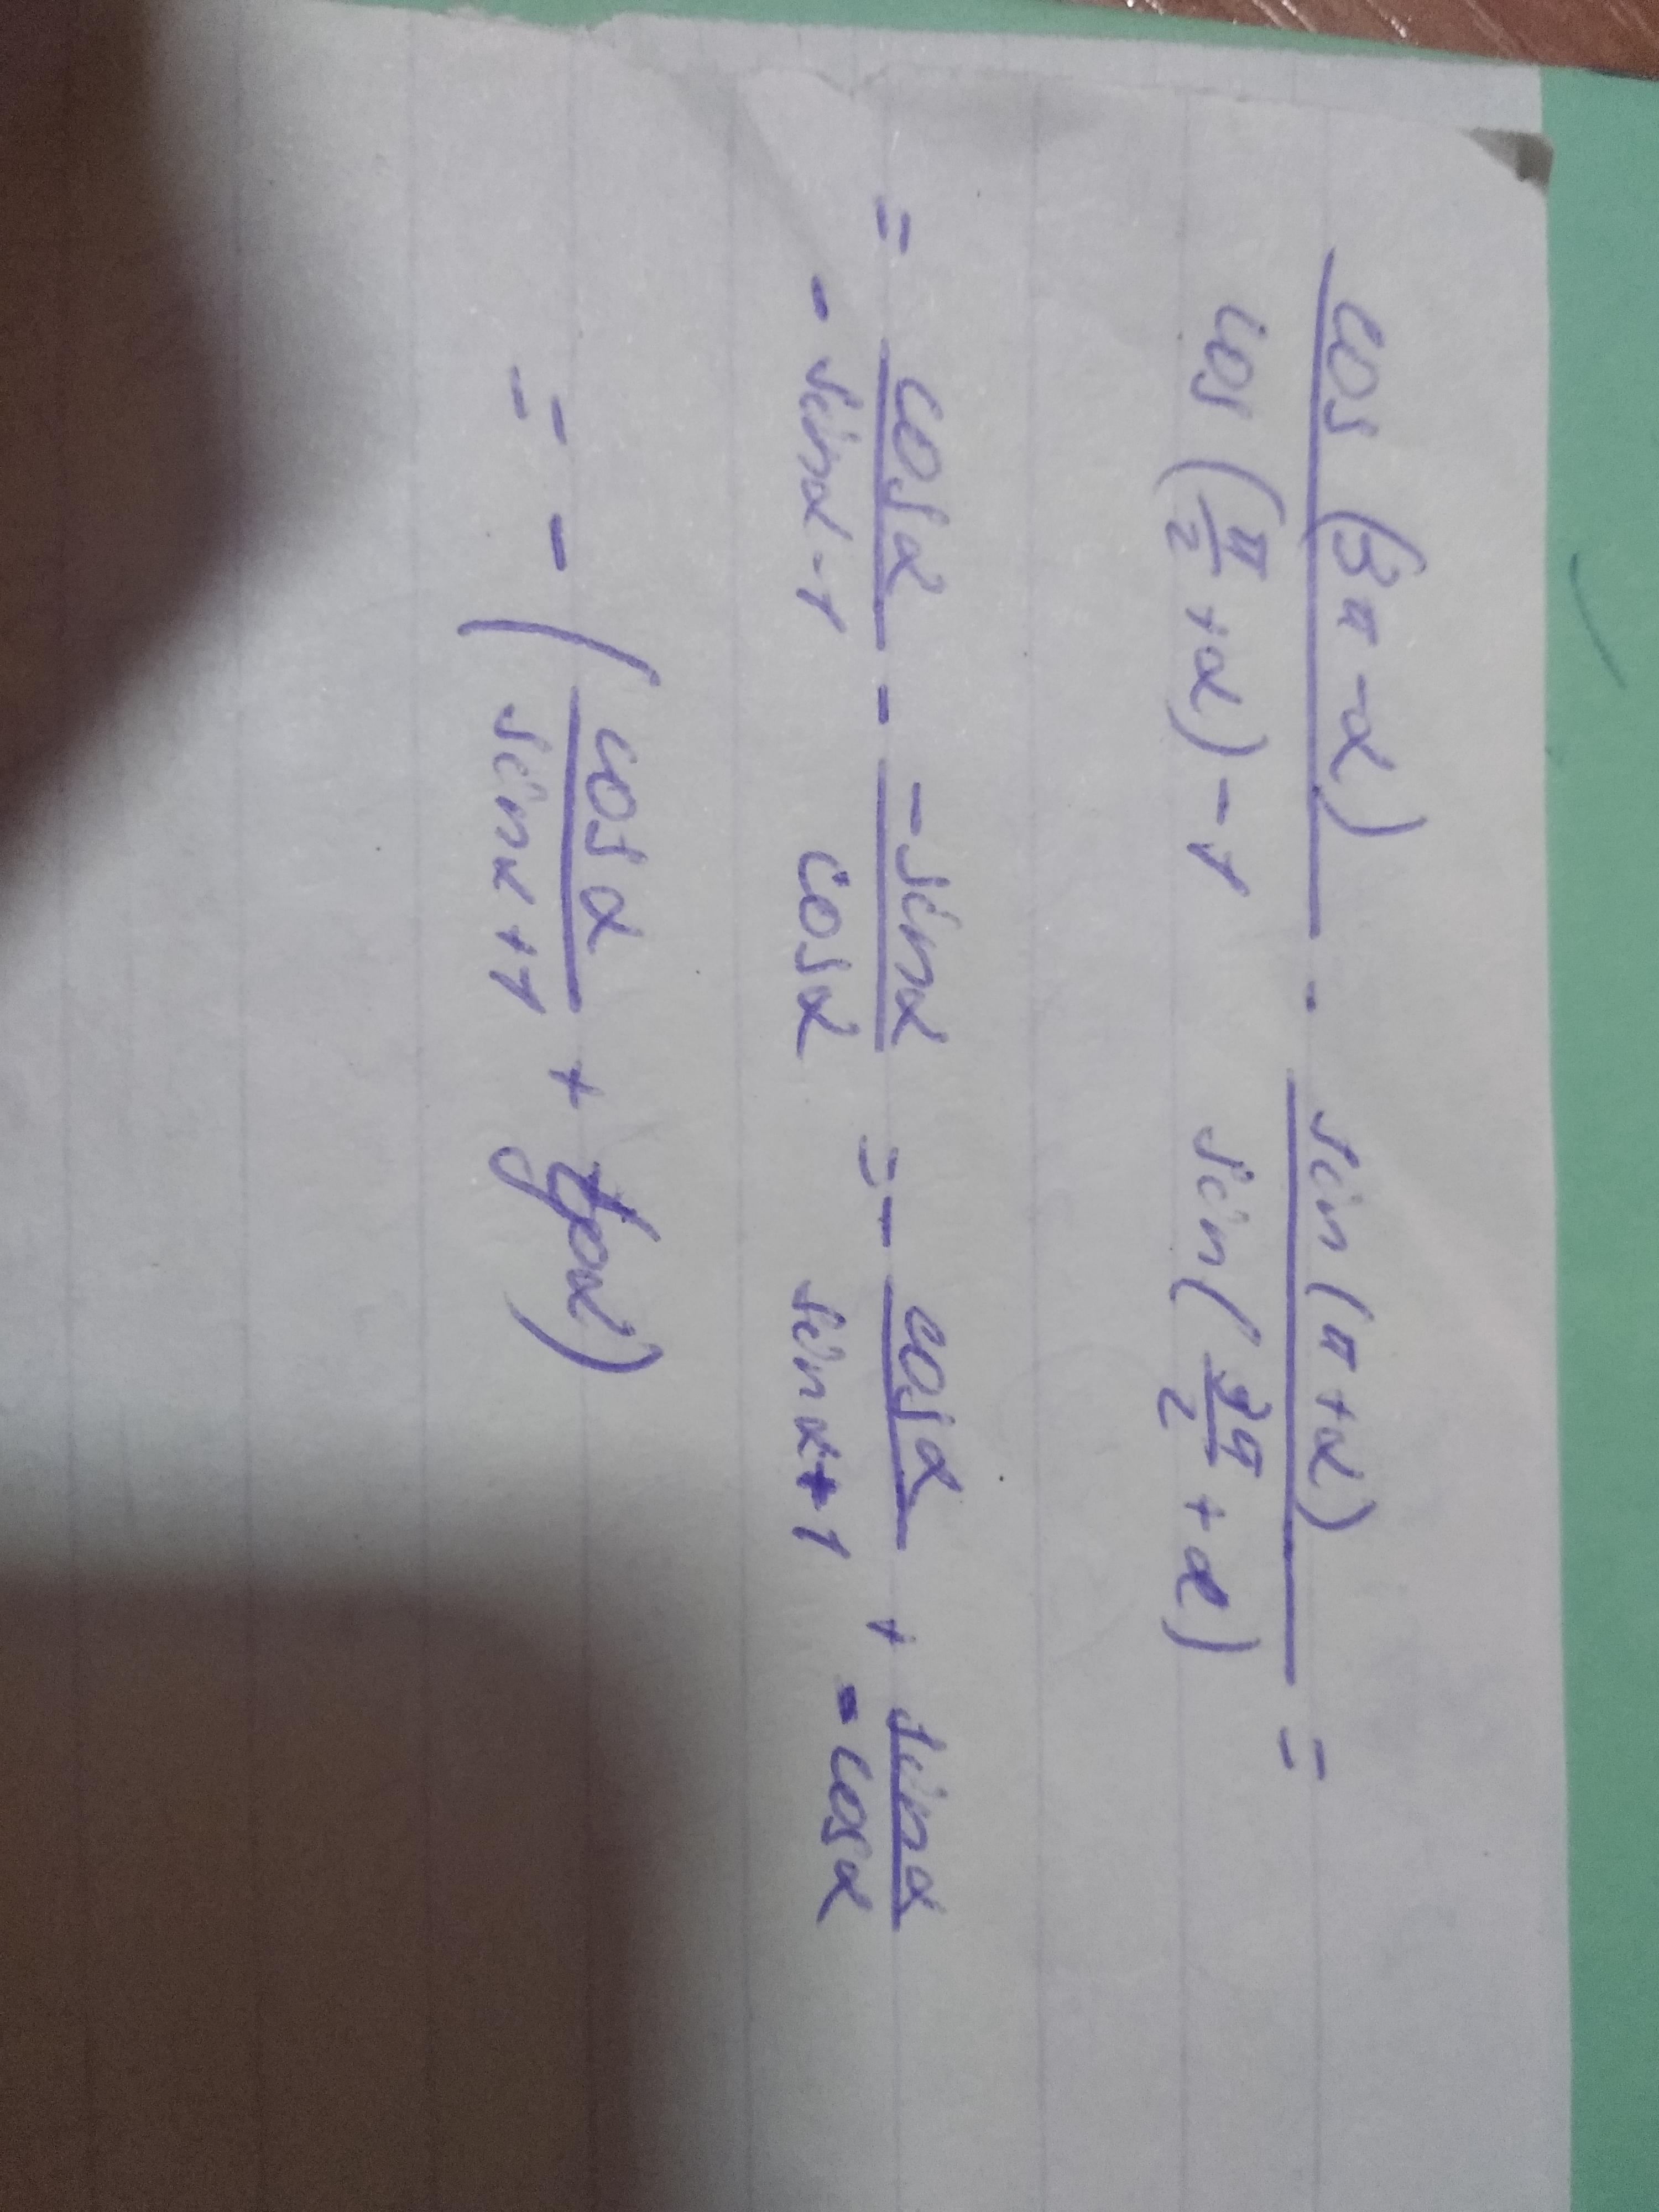 cos(3π-α) / cos(π/2+α)-1 - sin(π+α) / sin(3π/2+α) =
= cosα / -sinα-1 - -sinα / cosα = - cosα / sinα+1 + sinα / -cosα
= -(cosα / sinα+1 + tgα)